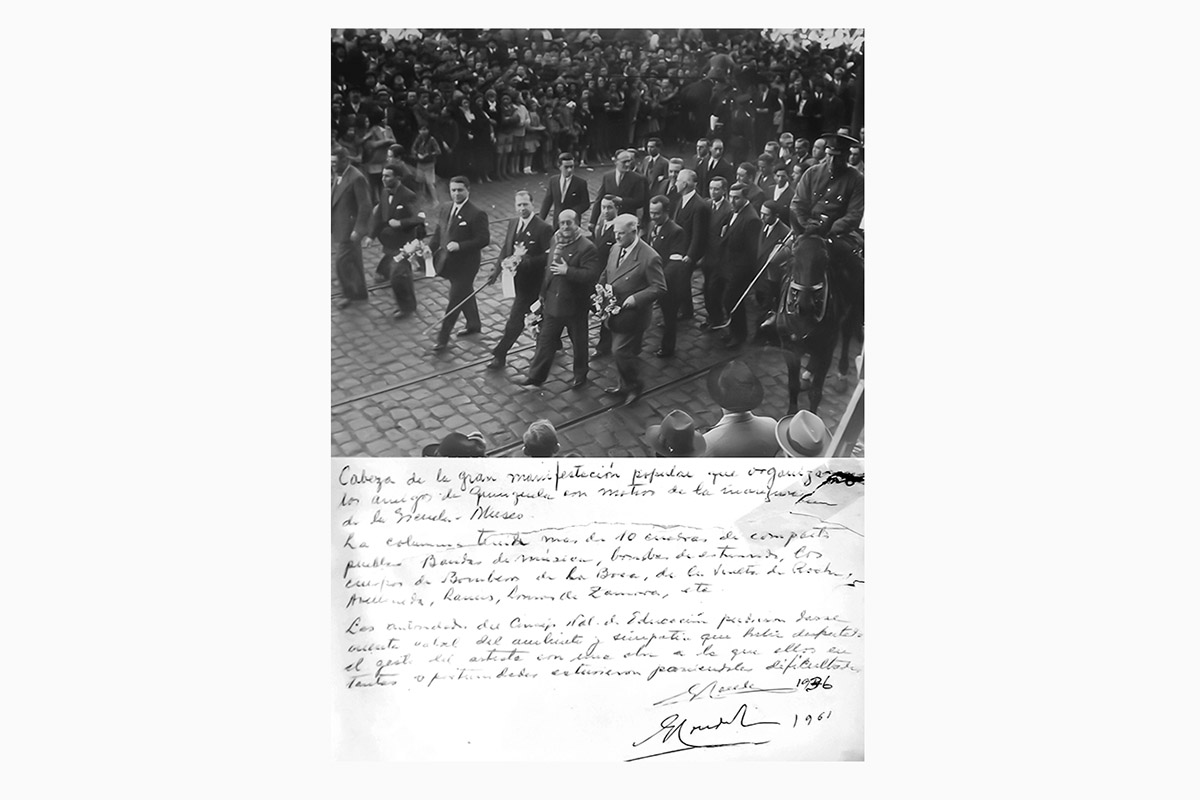 Cabeza de la gran manifestación popular que organizaron
los amigos de Quinquela con motivo de la inauguración
de la Escuela-Museo.
La columna tenía mas de 10 cuadras de compacto
pueblo Bandas de música, bombas de estruendo, los
cuerpos de Bomberos de La Boca, de la Vuelta de Rocha,
Avellaneda, Lanus, Lomas de Zamora, etc
Las autoridades del Consejo Nal. de Educación pudieron darse
cuenta cabal del ambiente y simpatía que había despertado
el gesto del artista con una obra a la que ellos en
tantas oportunidades estuvieron poniendole dificultades
1936
1961